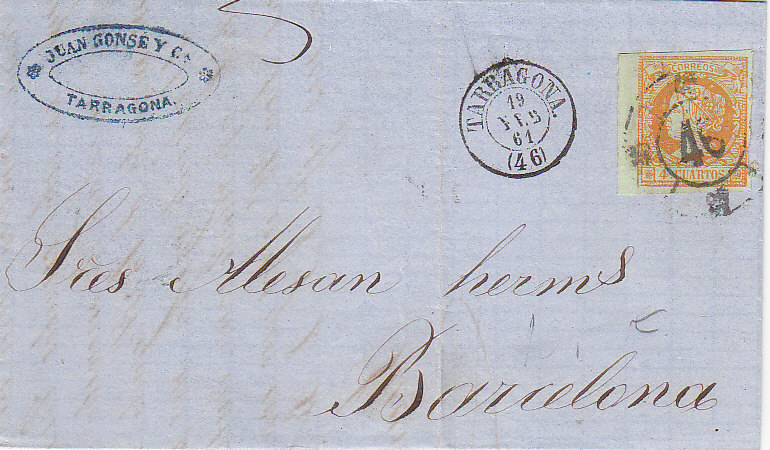 JUAN GONSÉ Y Cª
TARRAGONA.
TARRAGONA.
19
FEB
61
(46)
CORREOS
46
4 CUARTOS
Sres Alesan herms
Barcelona